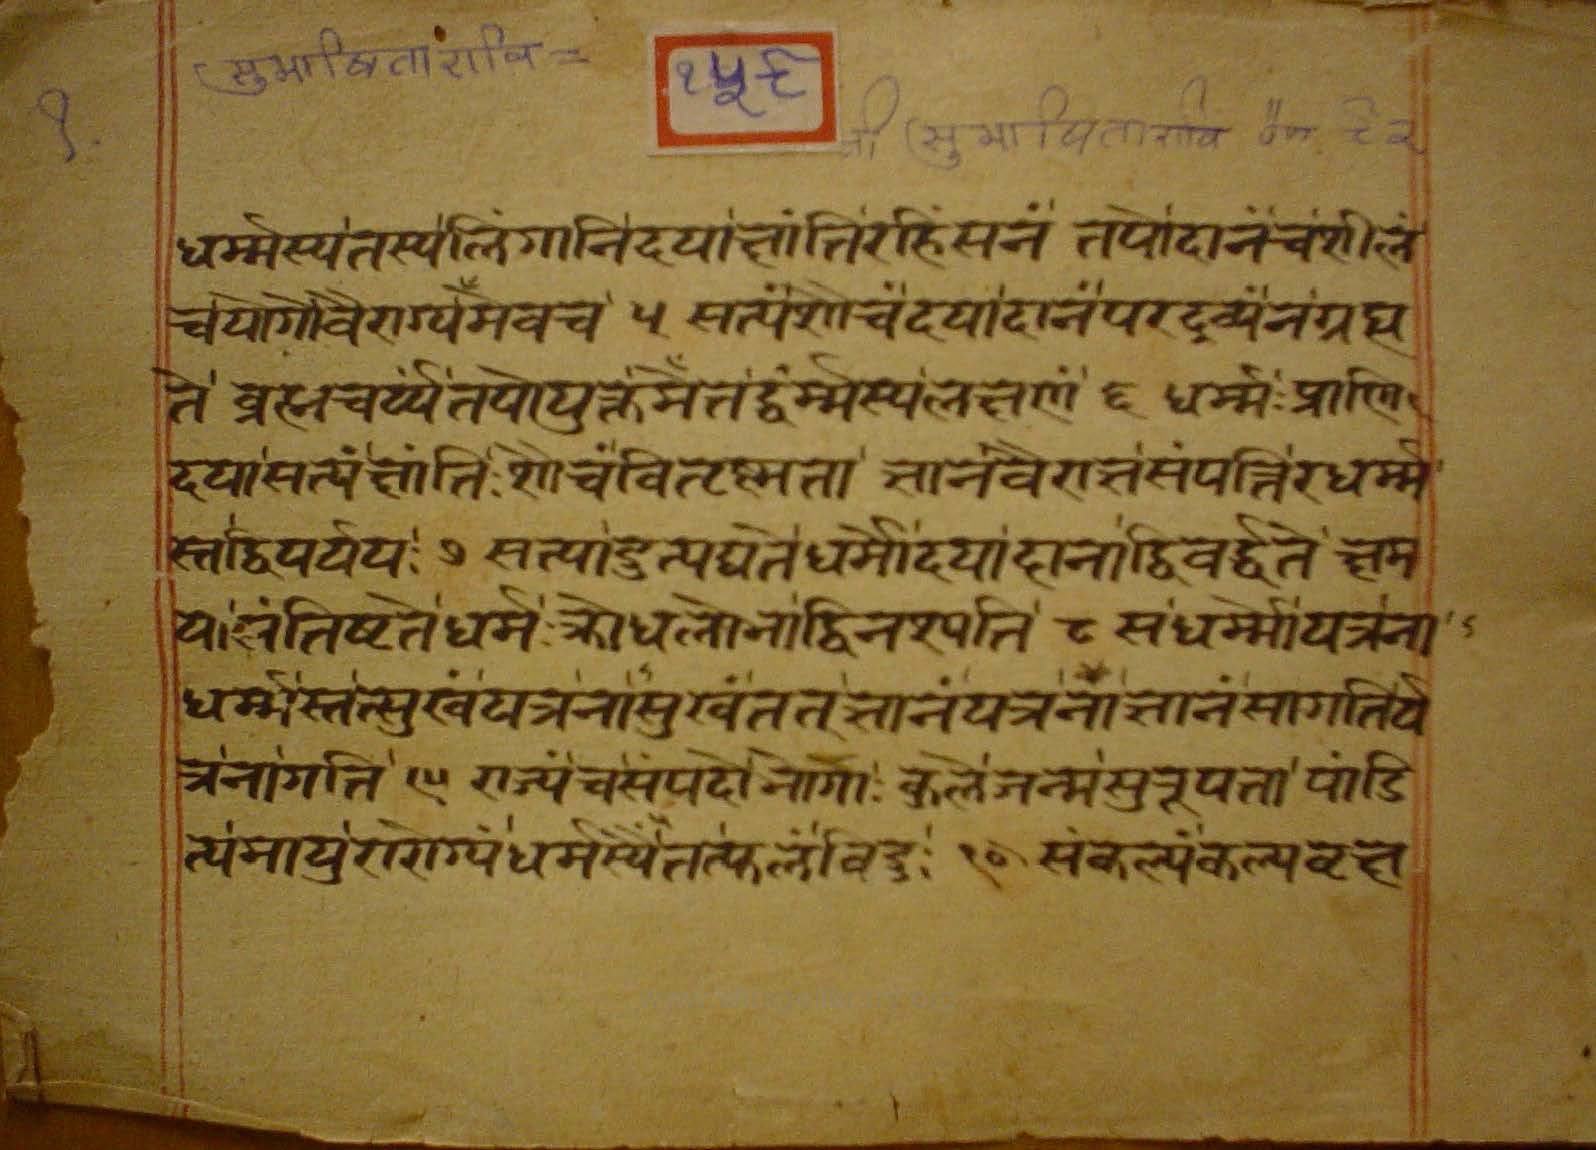 सुभाषितार्णव =
१५६
१.
श्री सुभाषितार्णव
धर्म्मस्य तस्य लिंगानि दया क्षांतिरहिंसनं तपो दानं च शीलं
च योगो वैराग्यमेव च ५ सत्यं शौचं दया दानं परद्रव्यं न ग्रह्य
ते ब्रह्मचर्य्यं तपोयुक्तमेतद्धर्म्मस्य लक्षणं ६ धर्म्मः प्राणि
दया सत्यं क्षांतिः शौचं वितृष्णता ज्ञानं वैराज्ञ संपत्तिरधर्म्म
स्तद्विपर्ययः ७ सत्यादुत्पद्यते धर्मो दया दानाद्विवर्द्धते क्षम
या संतिष्टते धर्मः क्रोधलोभाद्विनश्यति ८ स धर्म्मो यत्र ना
धर्म्मस्तत्सुखं यत्र नासुखं तत् ज्ञानं यत्र नाज्ञानं सा गतिर्य
त्र नागति ९ राज्यं च संपदो भोगाः कुले जन्म सुरूपता पांडि
त्यमायुरारोग्यं धर्मस्यैतत्फलं विदुः १० संकल्प्यं कल्पवृक्ष